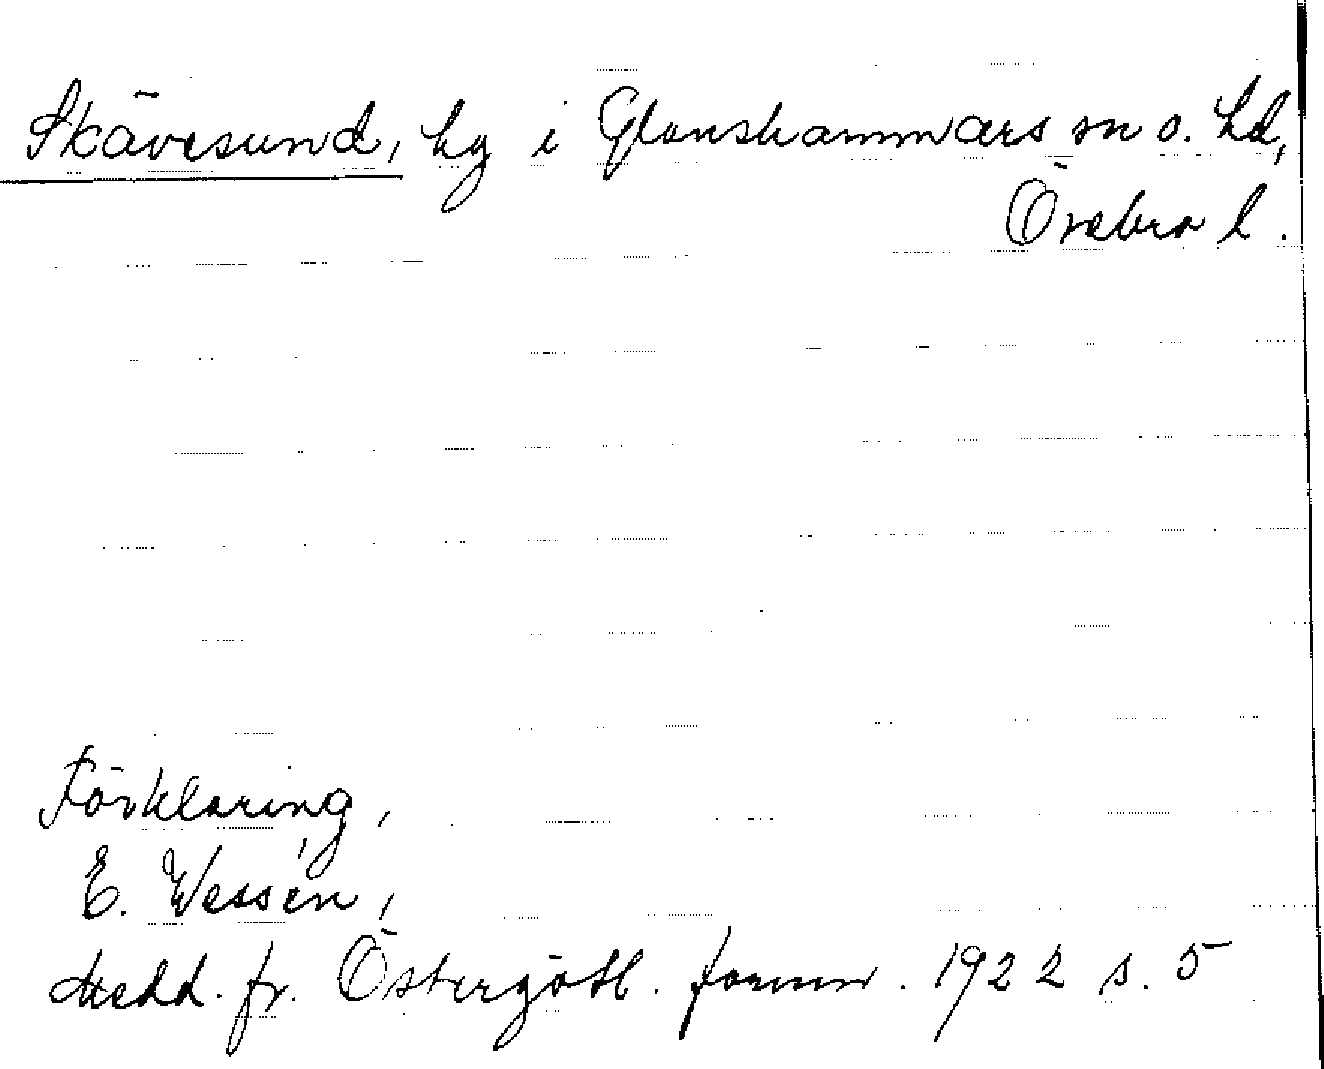 Skävesund, by i Glanshammars sn o. hd,
Örebro l.
Förklaring,
E. Wessén,
Medd. fr. Östergötl. fornm. 1922 s. 5